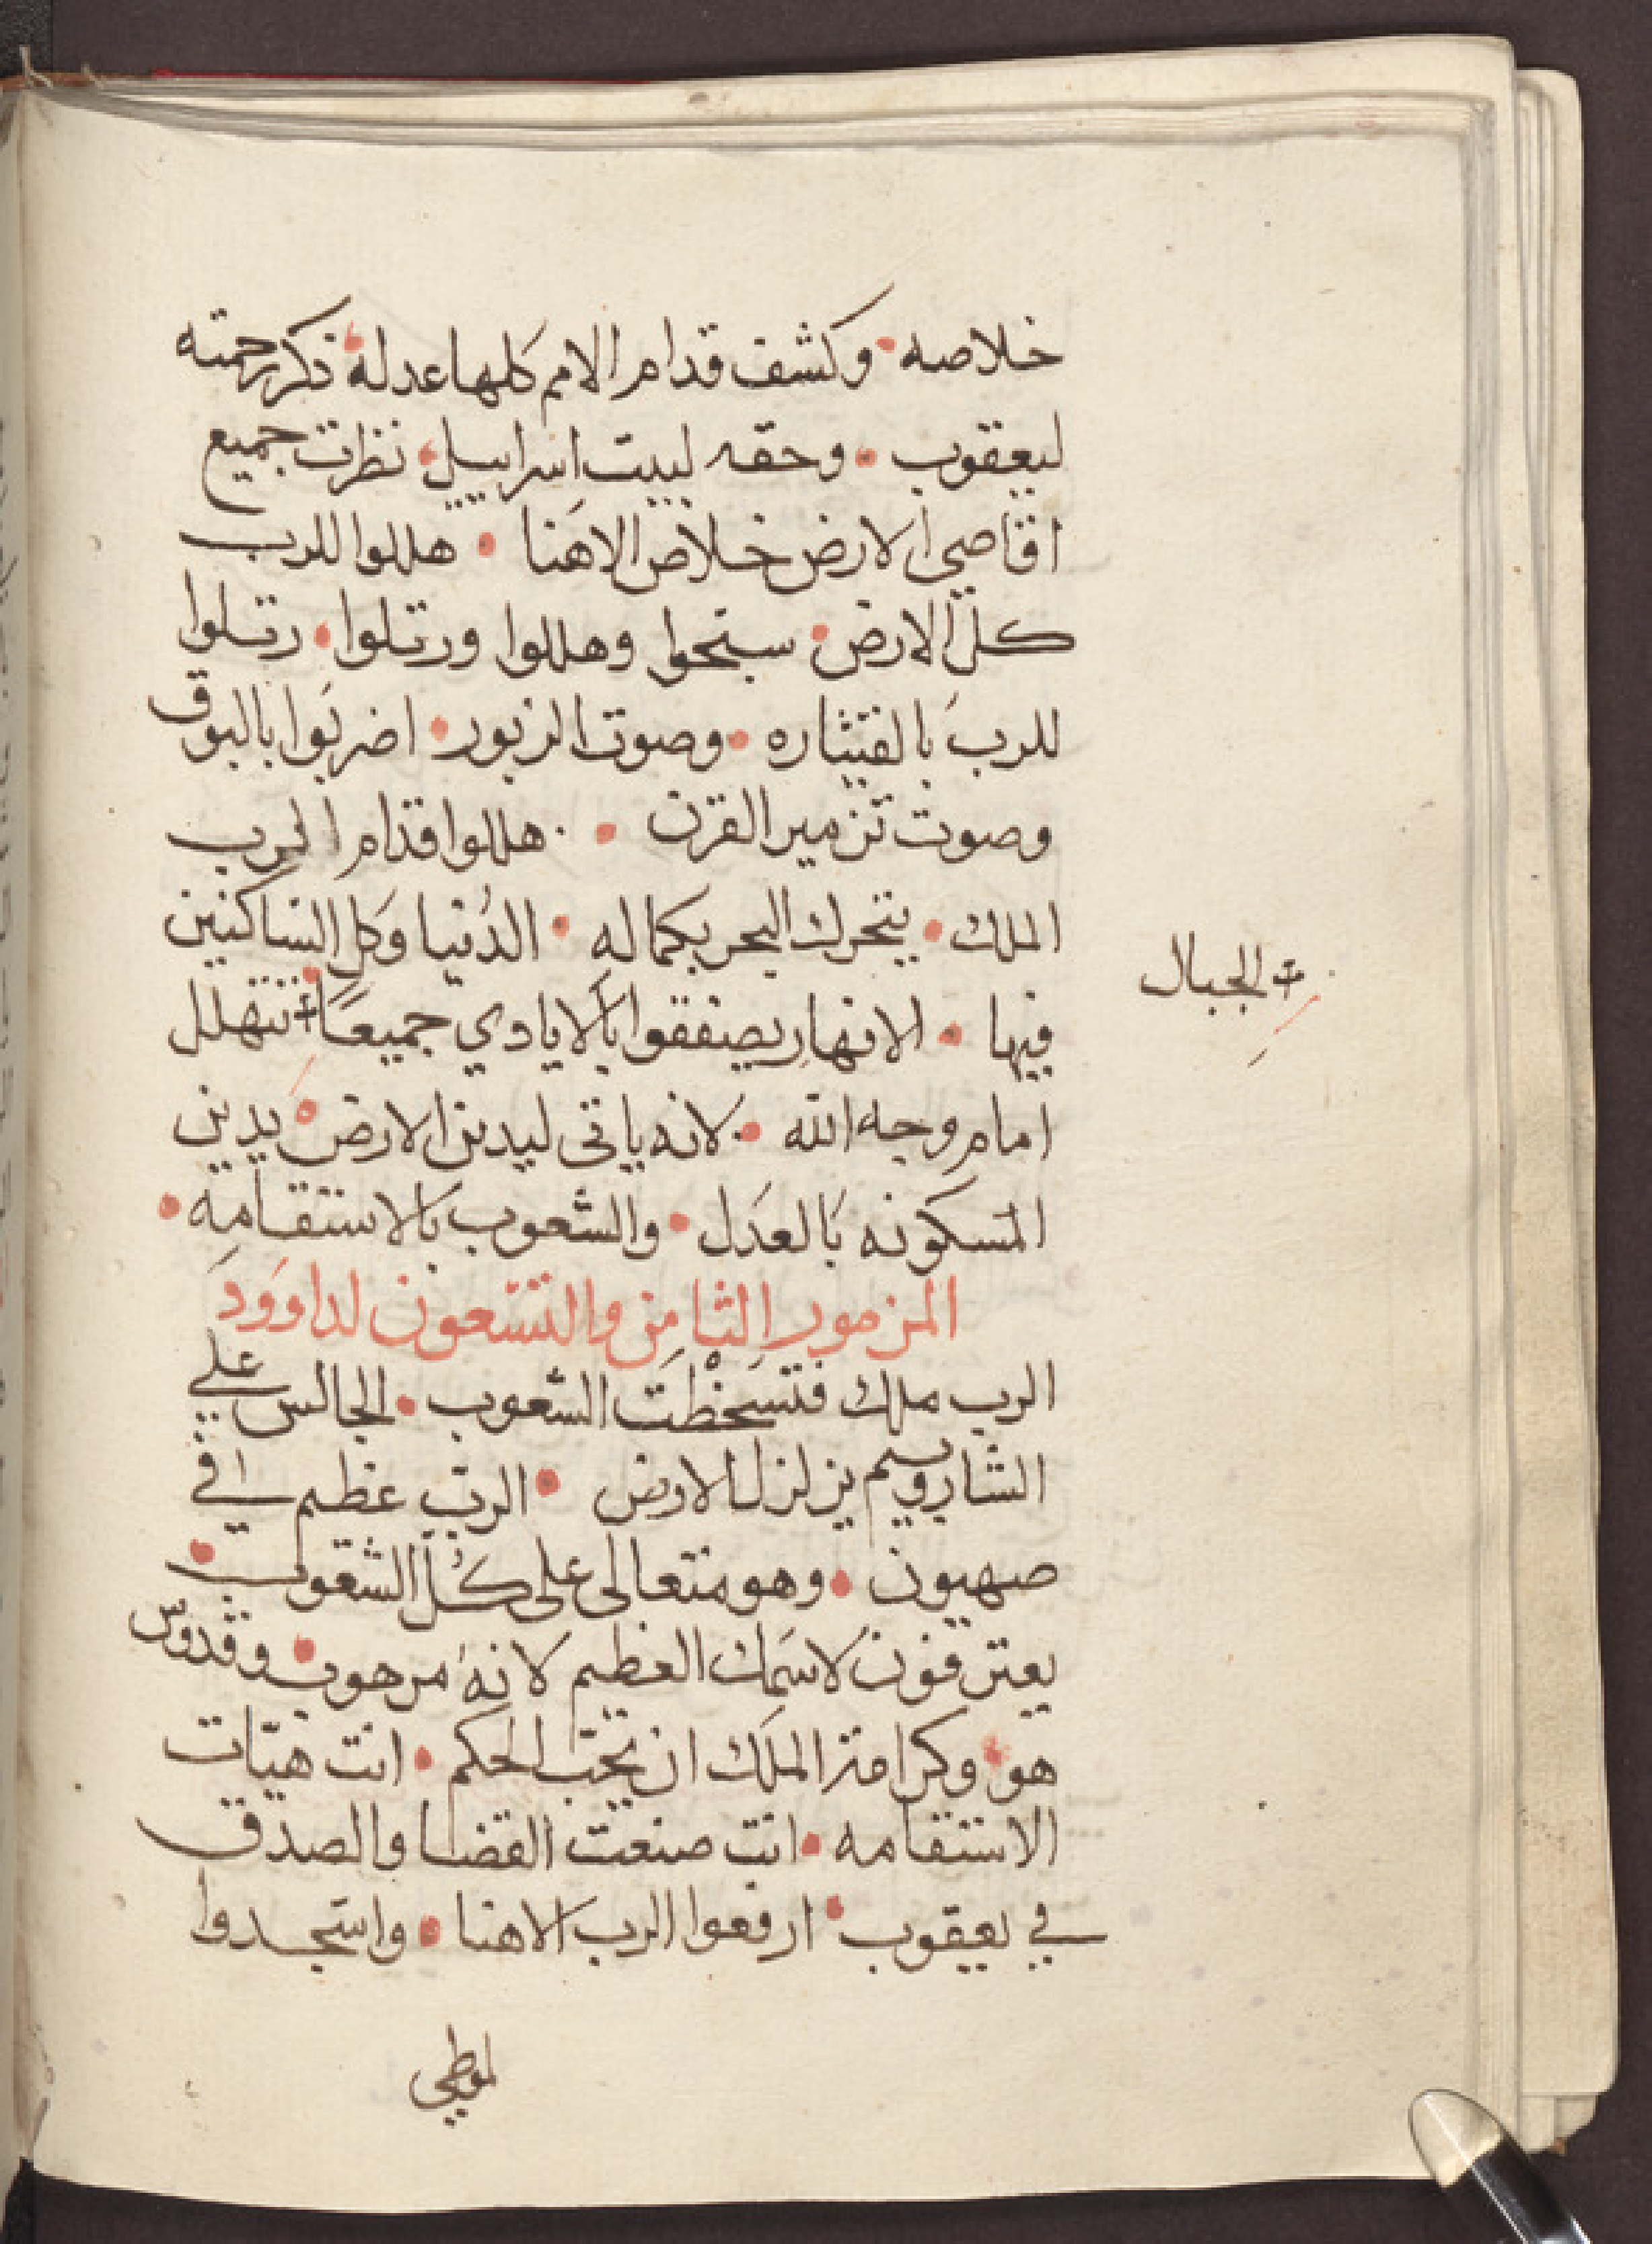 خلاصه • وكشف قدام الامم كلها عدله • ذكر رحمته
ليعقوب • وحقه لبيت اسراييل • نظرت جميع
اقاصي الارض خلاص الاهنا • هللوا للرب
كل الارض • سبحوا وهللوا ورتلوا • رتلوا
للرب بالقيثاره • وصوت الزبور • اضربوا بالبوق
وصوت تزمير القرن • هللوا قدام الرب
الملك • يتحرك البحر بكماله • الدنيا وكل الساكنين
فيها • الانهار يصفقوا بالايادي جميعًا + تتهلل
+ الجبال
امام وجه الله • لانه ياتى ليدين الارض • يدين
المسكونه بالعدل • والشعوب بالاستقامه •
المزمور الثامن والتسعون لداوود
الرب ملك فتسخطت الشعوب • الجالس علي
الشاروبيم يزلزل الارض • الرب عظيم في
صهيون • وهو متعالى على كل الشعوب •
يعترفون لاسمك العظيم لانه مرهوب • وقدوس
هو • وكرامة الملك ان تحب الحكم • انت هيات
الاستقامه • انت صنعت القضا والصدق
في يعقوب • ارفعوا الرب الاهنا • واسجدوا
لموطي